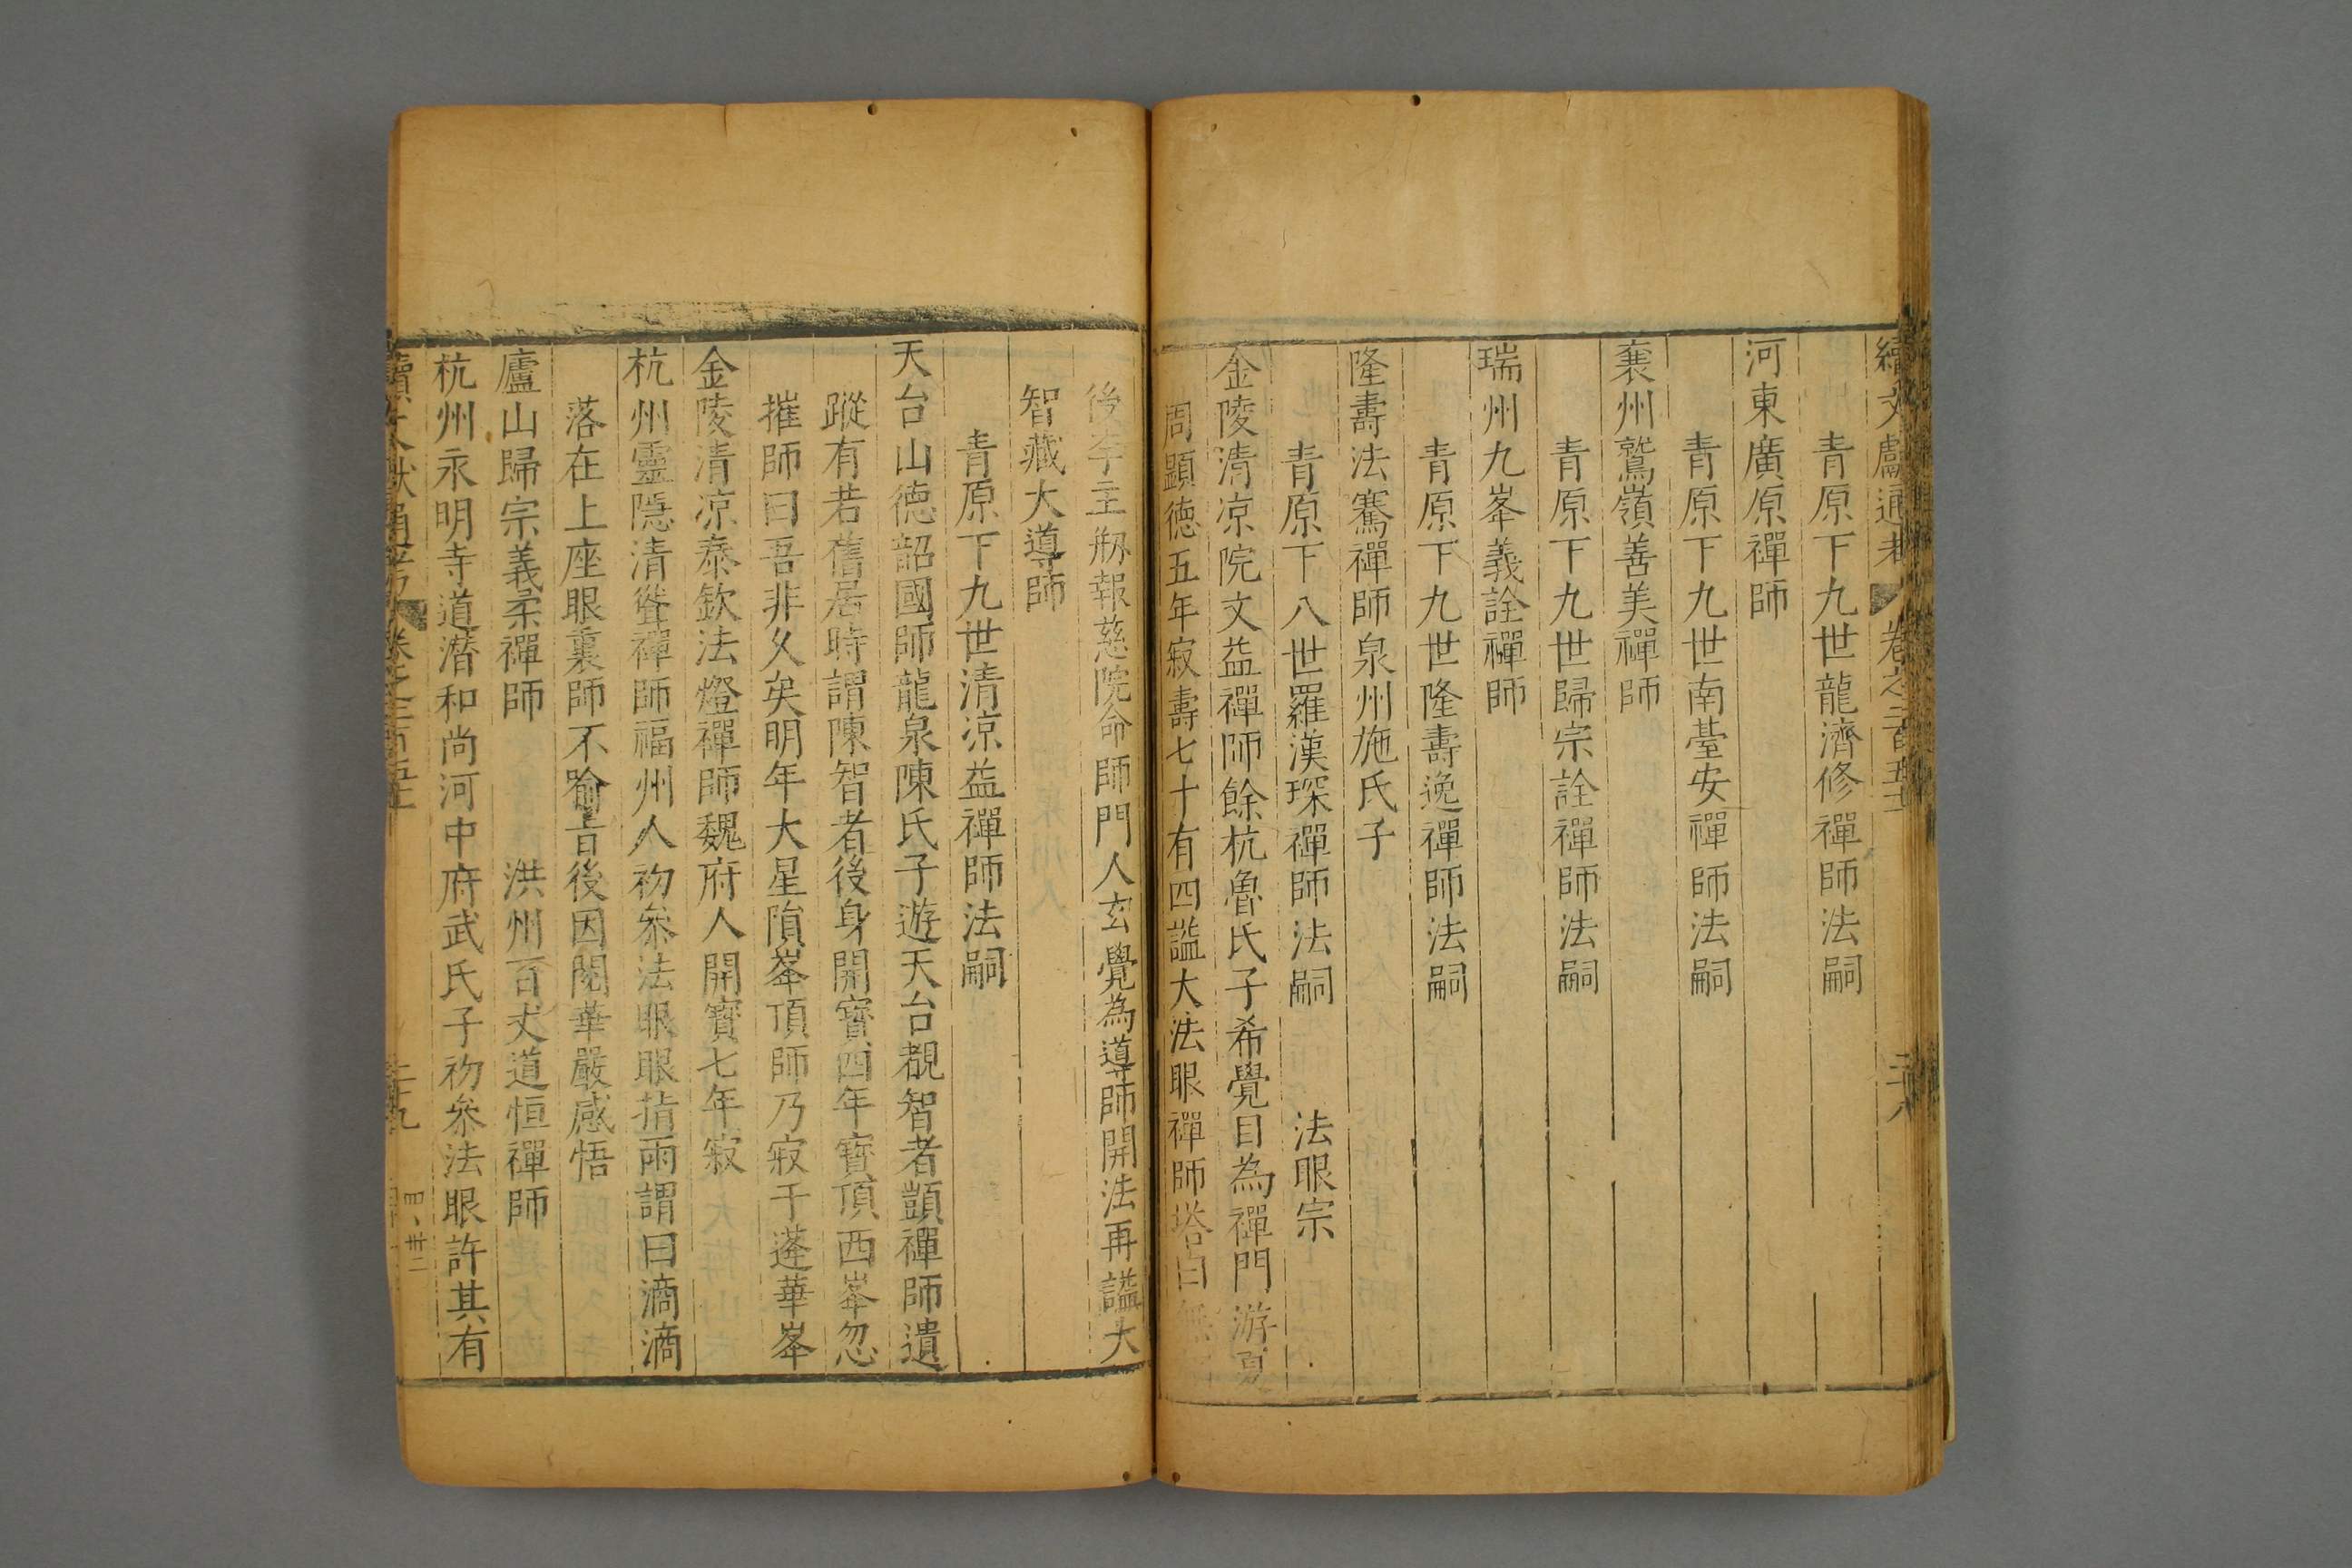 續文獻通考 卷之二百五十 二十八
青原下九世龍濟修禪師法嗣
河東廣原禪師
青原下九世南臺安禪師法嗣
襄州鷲嶺善美禪師
青原下九世歸宗詮禪師法嗣
瑞州九峯義詮禪師
青原下九世隆壽逸禪師法嗣
隆壽法騫禪師泉州施氏子
青原下八世羅漢琛禪師法嗣 法眼宗
金陵清凉院文益禪師餘杭魯氏子希覺目為禪門游夏
周顯德五年寂壽七十有四謚大法眼禪師塔曰無
後李主刱報慈院命師門人玄覺為導師開法再謚大
智藏大導師
青原下九世清凉益禪師法嗣
天台山德韶國師龍泉陳氏子遊天台覩智者顗禪師遺
蹤有若舊居時謂陳智者後身開寶四年寶頂西峯忽
摧師曰吾非久矣明年大星隕峯頂師乃寂于蓮華峯
金陵清凉泰欽法燈禪師魏府人開寶七年寂
杭州靈隱清聳禪師福州人初叅法眼眼指雨謂曰滴滴
落在上座眼裏師不喻旨後因閱華嚴感悟
廬山歸宗義柔禪師 洪州百丈道恒禪師
杭州永明寺道潛和尚河中府武氏子初叅法眼許其有
二十九